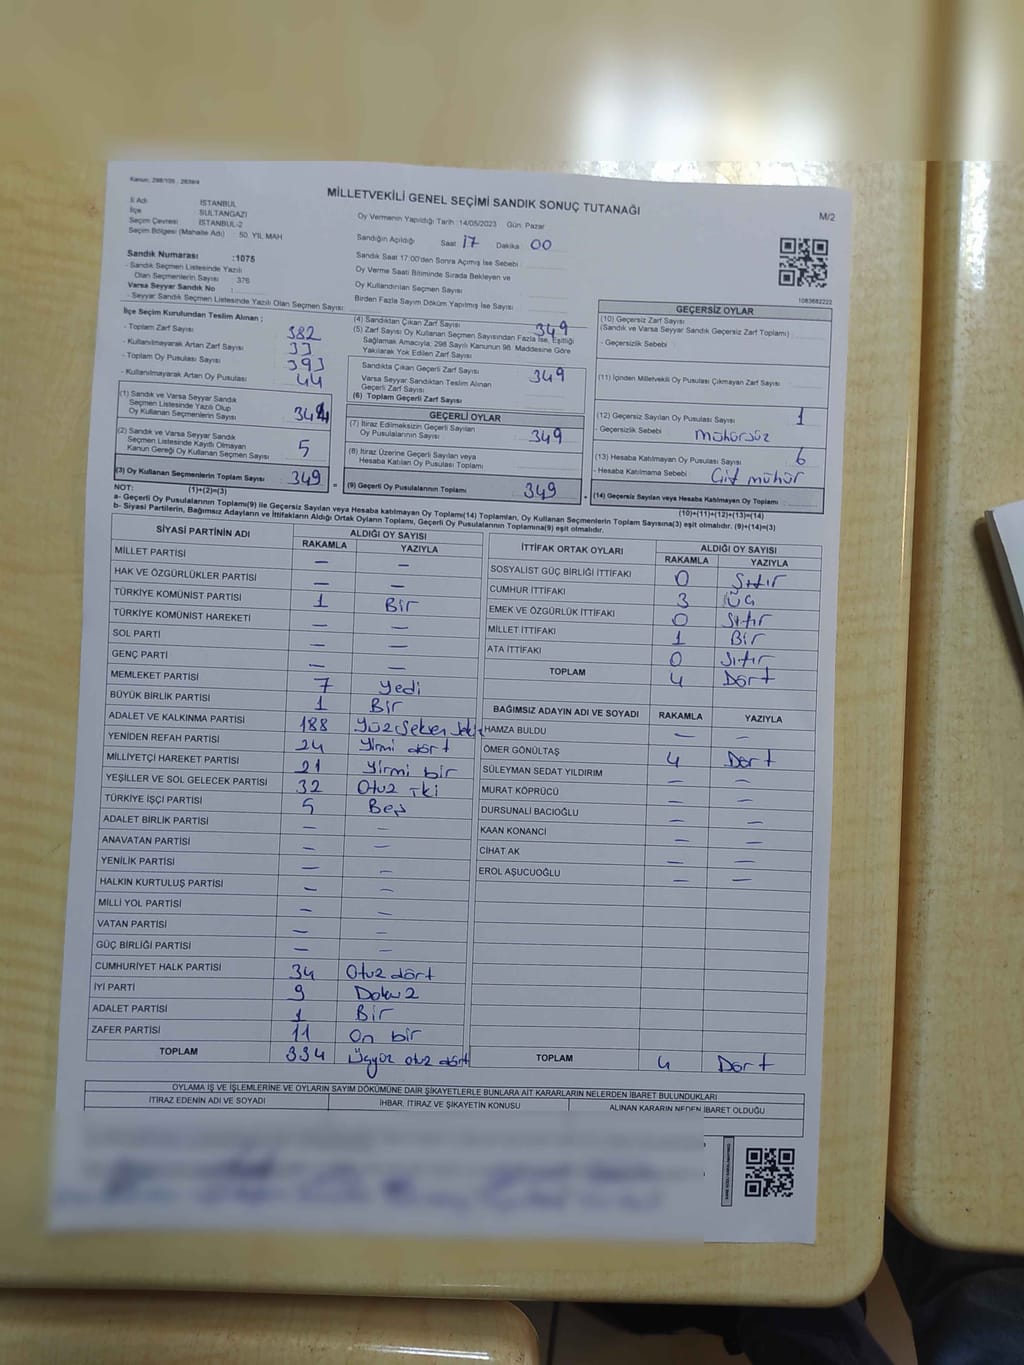 Kanun: 298/105 , 2839/4
MİLLETVEKİLİ GENEL SEÇİMİ SANDIK SONUÇ TUTANAĞI
M/2
İl Adı İSTANBUL
İlçe SULTANGAZİ
Seçim Çevresi İSTANBUL-2
Seçim Bölgesi (Mahalle Adı) : 50. YIL MAH
Sandık Numarası :1075
- Sandık Seçmen Listesinde Yazılı
Olan Seçmenlerin Sayısı : 376
Varsa Seyyar Sandık No :
- Seyyar Sandık Seçmen Listesinde Yazılı Olan Seçmen Sayısı:
Oy Vermenin Yapıldığı Tarih :14/05/2023 Gün: Pazar
Sandığın Açıldığı Saat 17 Dakika 00
Sandık Saat 17:00'den Sonra Açımış İse Sebebi
Oy Verme Saati Bitiminde Sırada Bekleyen ve
Oy Kullandırılan Seçmen Sayısı
Birden Fazla Sayım Döküm Yapılmış İse Sayısı
1083682222
İlçe Seçim Kurulundan Teslim Alınan ;
- Toplam Zarf Sayısı 382
- Kullanılmayarak Artan Zarf Sayısı 33
- Toplam Oy Pusulası Sayısı 393
- Kullanılmayarak Artan Oy Pusulası 44
(1) Sandık ve Varsa Seyyar Sandık
Seçmen Listesinde Yazılı Olup
Oy Kullanan Seçmenlerin Sayısı 344
(2) Sandık ve Varsa Seyyar Sandık
Seçmen Listesinde Kayıtlı Olmayan
Kanun Gereği Oy Kullanan Seçmen Sayısı 5
(3) Oy Kullanan Seçmenlerin Toplam Sayısı 349
(1)+(2)=(3)
(4) Sandıktan Çıkan Zarf Sayısı 349
(5) Zarf Sayısı Oy Kullanan Seçmen Sayısından Fazla İse, Eşitliği
Sağlamak Amacıyla; 298 Sayılı Kanunun 98. Maddesine Göre
Yakılarak Yok Edilen Zarf Sayısı
Sandıkta Çıkan Geçerli Zarf Sayısı 349
Varsa Seyyar Sandıktan Teslim Alınan
Geçerli Zarf Sayısı
(6) Toplam Geçerli Zarf Sayısı
GEÇERLİ OYLAR
(7) İtiraz Edilmeksizin Geçerli Sayılan
Oy Pusulalarının Sayısı 349
(8) İtiraz Üzerine Geçerli Sayılan veya
Hesaba Katılan Oy Pusulası Toplamı
(9) Geçerli Oy Pusulalarının Toplamı 349
GEÇERSİZ OYLAR
(10) Geçersiz Zarf Sayısı
(Sandık ve Varsa Seyyar Sandık Geçersiz Zarf Toplamı)
- Geçersizlik Sebebi
(11) İçinden Milletvekili Oy Pusulası Çıkmayan Zarf Sayısı
(12) Geçersiz Sayılan Oy Pusulası Sayısı 1
- Geçersizlik Sebebi mühürsüz
(13) Hesaba Katılmayan Oy Pusulası Sayısı 6
- Hesaba Katılmama Sebebi Çift mühür
(14) Geçersiz Sayılan veya Hesaba Katılmayan Oy Toplamı
(10)+(11)+(12)+(13)=(14)
NOT:
a- Geçerli Oy Pusulalarının Toplamı(9) ile Geçersiz Sayılan veya Hesaba katılmayan Oy Toplamı(14) Toplamları, Oy Kullanan Seçmenlerin Toplam Sayısına(3) eşit olmalıdır. (9)+(14)=(3)
b- Siyasi Partilerin, Bağımsız Adayların ve İttifakların Aldığı Ortak Oyların Toplamı, Geçerli Oy Pusulalarının Toplamına(9) eşit olmalıdır.
SİYASİ PARTİNİN ADI ALDIĞI OY SAYISI
RAKAMLA YAZIYLA
MİLLET PARTİSİ — —
HAK VE ÖZGÜRLÜKLER PARTİSİ — —
TÜRKİYE KOMÜNİST PARTİSİ 1 Bir
TÜRKİYE KOMÜNİST HAREKETİ — —
SOL PARTİ — —
GENÇ PARTİ — —
MEMLEKET PARTİSİ 7 Yedi
BÜYÜK BİRLİK PARTİSİ 1 Bir
ADALET VE KALKINMA PARTİSİ 188 Yüz Seksen Sekiz
YENİDEN REFAH PARTİSİ 24 Yirmi dört
MİLLİYETÇİ HAREKET PARTİSİ 21 Yirmi bir
YEŞİLLER VE SOL GELECEK PARTİSİ 32 Otuz iki
TÜRKİYE İŞÇİ PARTİSİ 5 Beş
ADALET BİRLİK PARTİSİ — —
ANAVATAN PARTİSİ — —
YENİLİK PARTİSİ — —
HALKIN KURTULUŞ PARTİSİ — —
MİLLİ YOL PARTİSİ — —
VATAN PARTİSİ — —
GÜÇ BİRLİĞİ PARTİSİ — —
CUMHURİYET HALK PARTİSİ 34 Otuz dört
İYİ PARTİ 9 Dokuz
ADALET PARTİSİ 1 Bir
ZAFER PARTİSİ 11 On bir
TOPLAM 334 Üçyüz otuz dört
İTTİFAK ORTAK OYLARI ALDIĞI OY SAYISI
RAKAMLA YAZIYLA
SOSYALİST GÜÇ BİRLİĞİ İTTİFAKI 0 Sıfır
CUMHUR İTTİFAKI 3 Üç
EMEK VE ÖZGÜRLÜK İTTİFAKI 0 Sıfır
MİLLET İTTİFAKI 1 Bir
ATA İTTİFAKI 0 Sıfır
TOPLAM 4 Dört
BAĞIMSIZ ADAYIN ADI VE SOYADI RAKAMLA YAZIYLA
HAMZA BULDU — —
ÖMER GÖNÜLTAŞ 4 Dört
SÜLEYMAN SEDAT YILDIRIM — —
MURAT KÖPRÜCÜ — —
DURSUNALİ BACIOĞLU — —
KAAN KONANCİ — —
CİHAT AK — —
EROL AŞUCUOĞLU — —
TOPLAM 4 Dört
OYLAMA İŞ VE İŞLEMLERİNE VE OYLARIN SAYIM DÖKÜMÜNE DAİR ŞİKAYETLERLE BUNLARA AİT KARARLARIN NELERDEN İBARET BULUNDUKLARI
İTİRAZ EDENİN ADI VE SOYADI İHBAR, İTİRAZ VE ŞİKAYETİN KONUSU ALINAN KARARIN NEDEN İBARET OLDUĞU